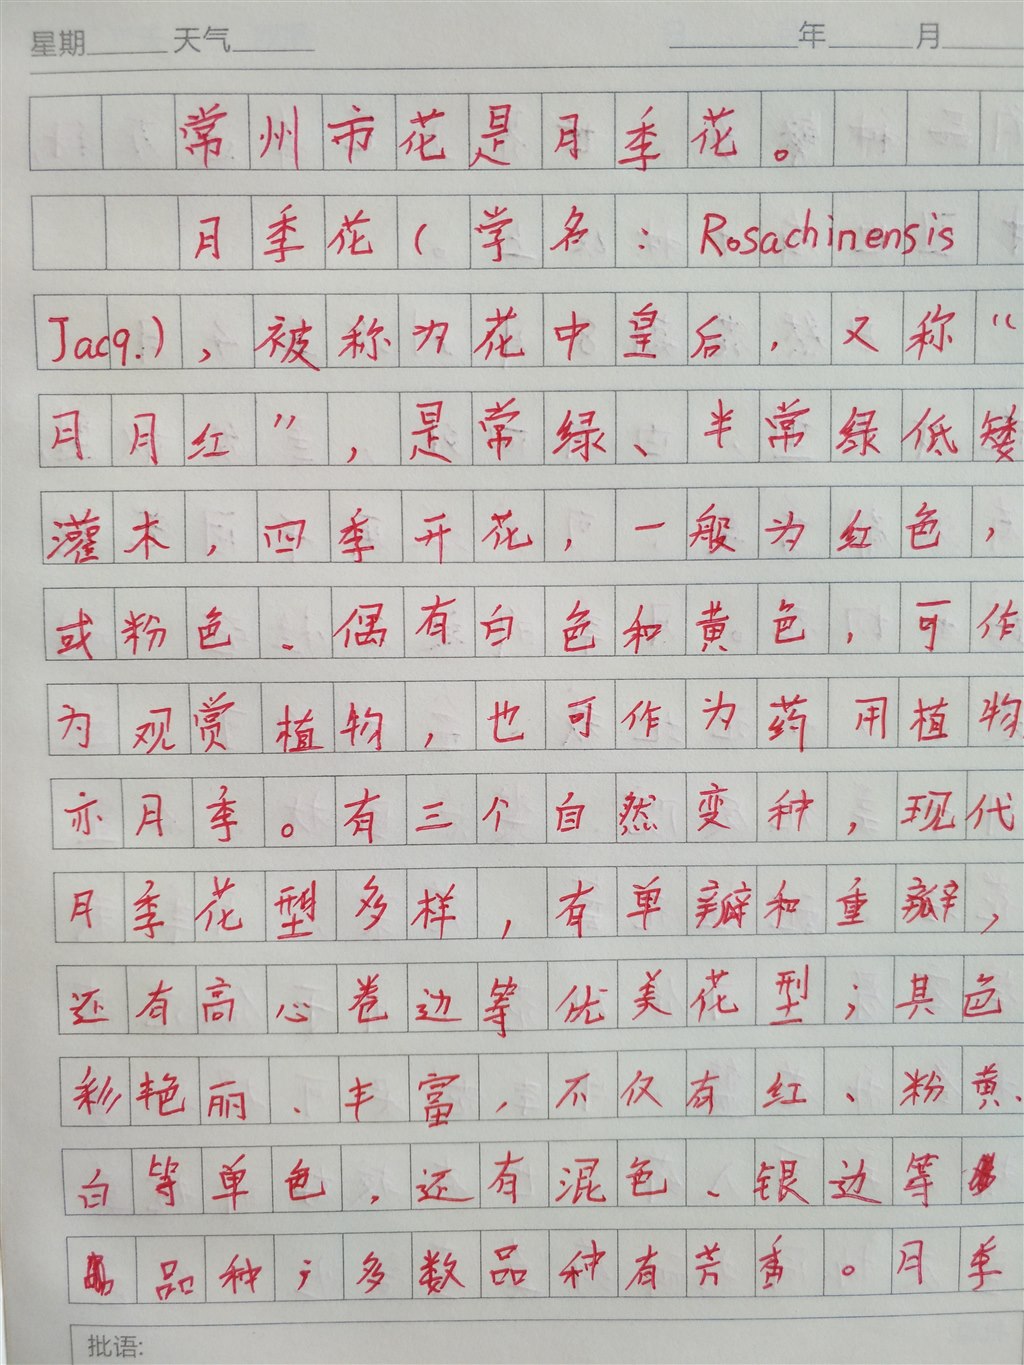 星期 天气 年 月
常州市花是月季花。
月季花(学名:Rosachinensis
Jacq.),被称为花中皇后,又称“
月月红”,是常绿、半常绿低矮
灌木,四季开花,一般为红色,
或粉色、偶有白色和黄色,可作
为观赏植物,也可作为药用植物
亦月季。有三个自然变种,现代
月季花型多样,有单瓣和重瓣,
还有高心卷边等优美花型;其色
彩艳丽、丰富,不仅有红、粉黄、
白等单色,还有混色、银边等
品种;多数品种有芳香。月季
批语: